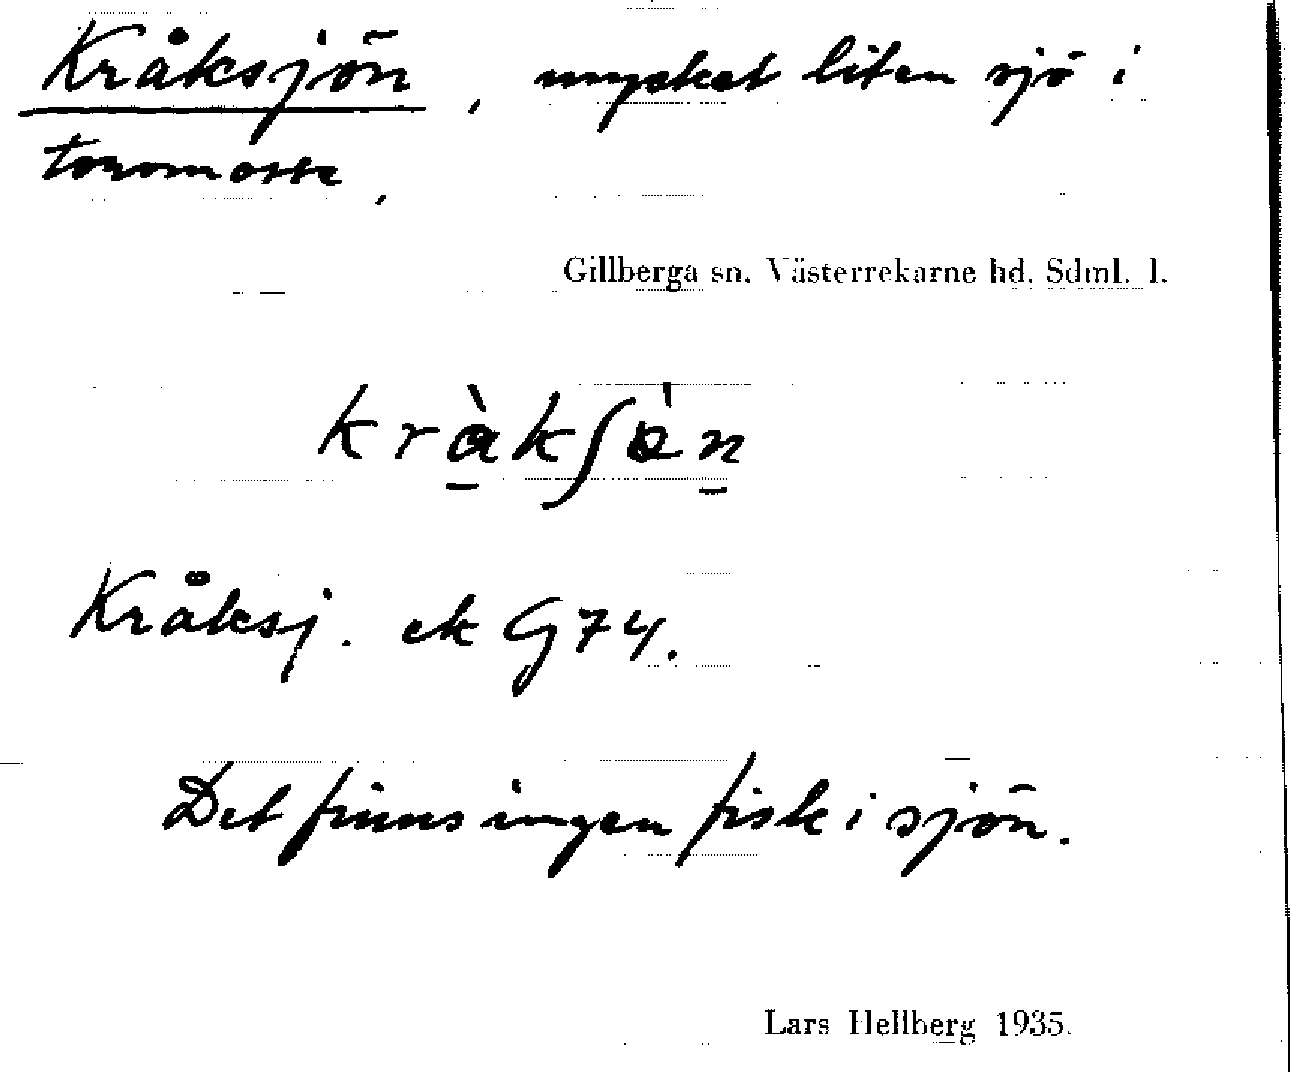 Kråksjön, mycket liten sjö i
tormosse,
Gillberga sn. Västerrekarne hd. Sdml. l.
kràkʃɵ̀n
Kråksj. ek G74.
Det finns ingen fisk i sjön.
Lars Hellberg 1935.